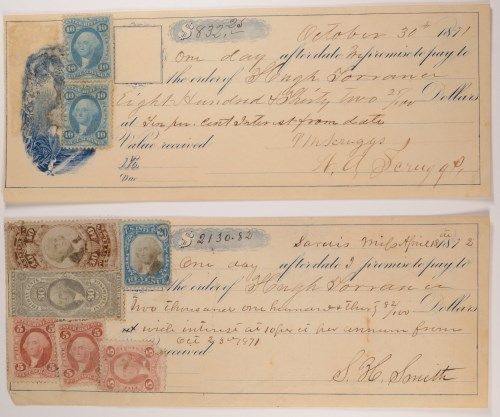 $832.25 October 30th 1871
One day after date We promise to pay to
the order of Hugh Torrance
Eight Hundred & Thirty two 25/100 Dollars
at Ten per. Cent Interest from date
Value received
Due
10
10
$2130.82 Sardis Miss April 18th 1872
One day after date I promise to pay to
the order of Hugh Torrance
Two thousand one hundred & thirty 82/100 Dollars
with interest at 10 per ct per annum from
received
S. H. Smith
5
5
5